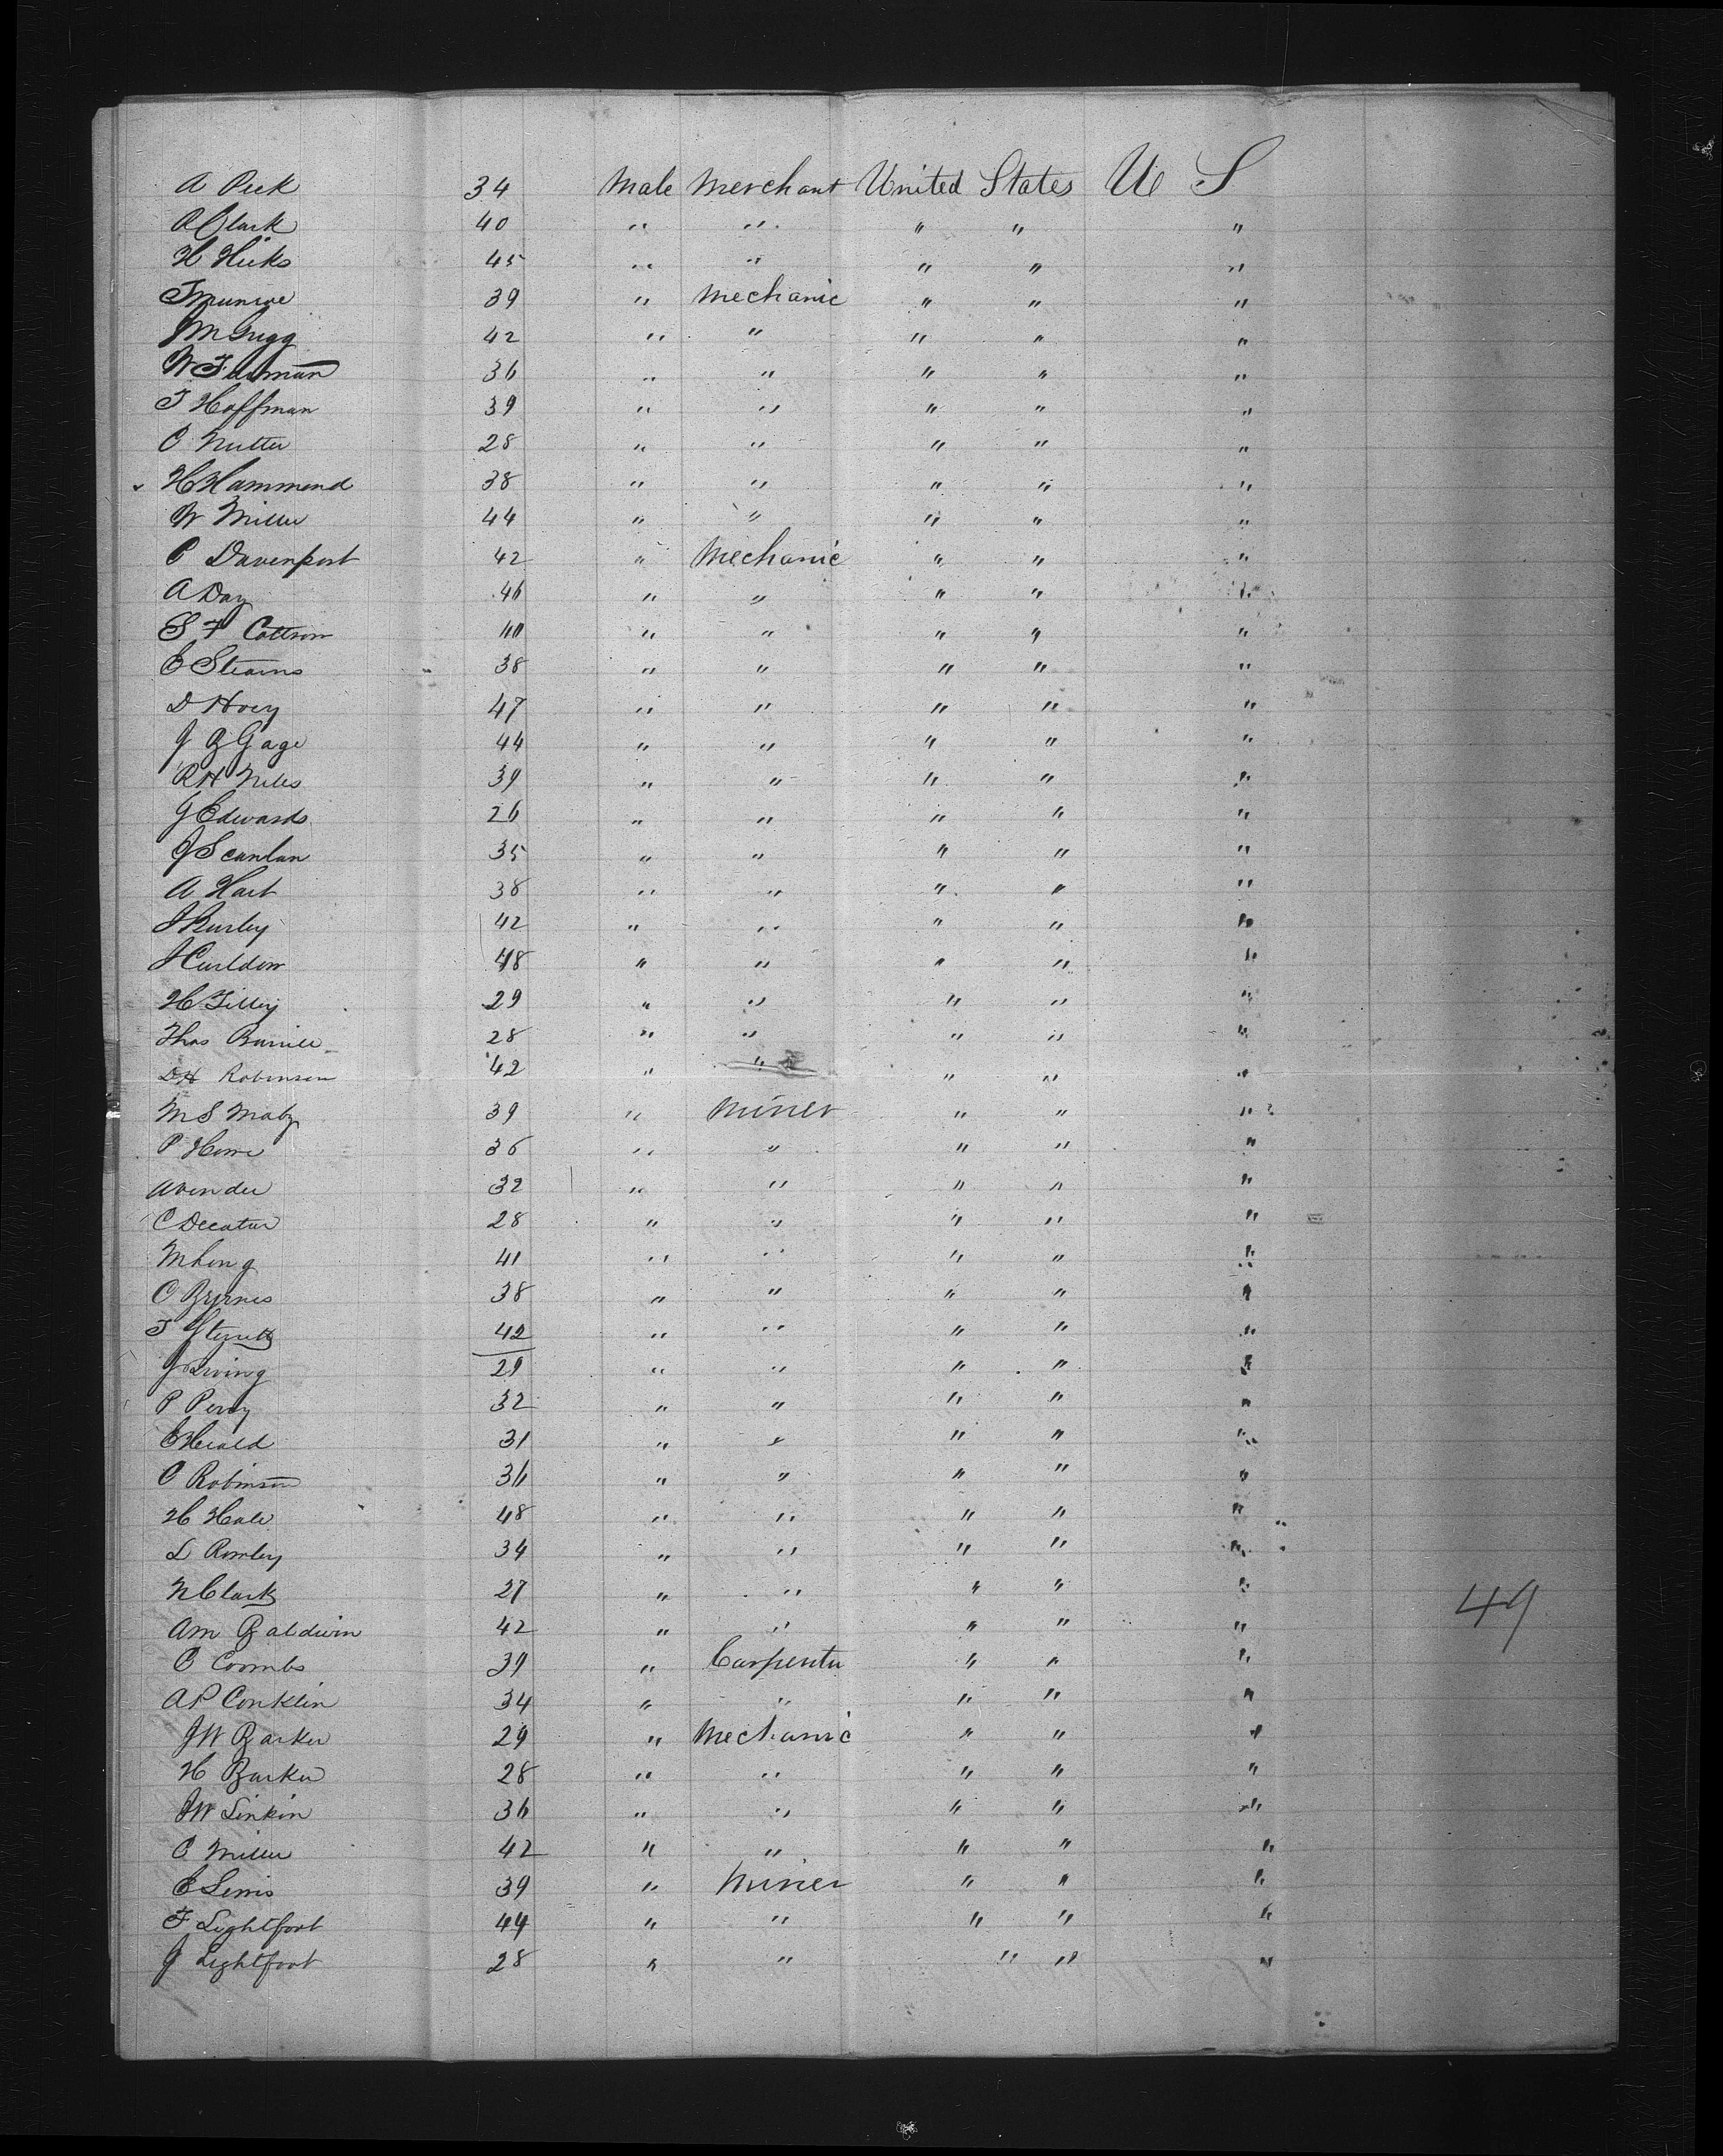 A Peck 34 Male Merchant United States U S
A Clark 40 " " " " "
H Hicks 45 " " " " "
T Munroe 39 " Mechanic " " "
J M Grigg 42 " " " " "
W 36 " " " " "
T Hoffman 39 " " " " "
O Nutter 28 " " " " "
H Hammond 38 " " " " "
W Miller 44 " " " " "
C Davenport 42 " Mechanic " " "
A Day 46 " " " " "
S F 40 " " " " "
E Stearns 38 " " " " "
D Hoey 47 " " " " "
J B Gage 44 " " " " "
R H Niles 39 " " " " "
J Edwards 26 " " " " "
J Scanlan 35 " " " " "
A Hart 38 " " " " "
J Burley 42 " " " " "
J 48 " " " " "
H Tilley 29 " " " " "
Thos 28 " " " " "
D H Robinson 42 " " " " "
M S 39 " Miner " " "
P Howe 36 " " " " "
32 " " " " "
C Decatur 28 " " " " "
M Long 41 " " " " "
O Byrnes 38 " " " " "
T 42 " " " " "
J Irving 29 " " " " "
P Perry 32 " " " " "
E Herald 31 " " " " "
C Robinson 36 " " " " "
H Hale 48 " " " " "
L Romley 34 " " " " "
N Clark 27 " " " " "
A M Baldwin 42 " " " " "
49
C Coombs 39 " Carpenter " " "
A P Conklin 34 " " " " "
J W Barker 29 " Mechanic " " "
H Barker 28 " " " " "
J W Linkin 36 " " " " "
C Miller 42 " " " " "
E Lewis 39 " Miner " " "
F Lightfoot 44 " " " " "
J Lightfoot 28 " " " " "